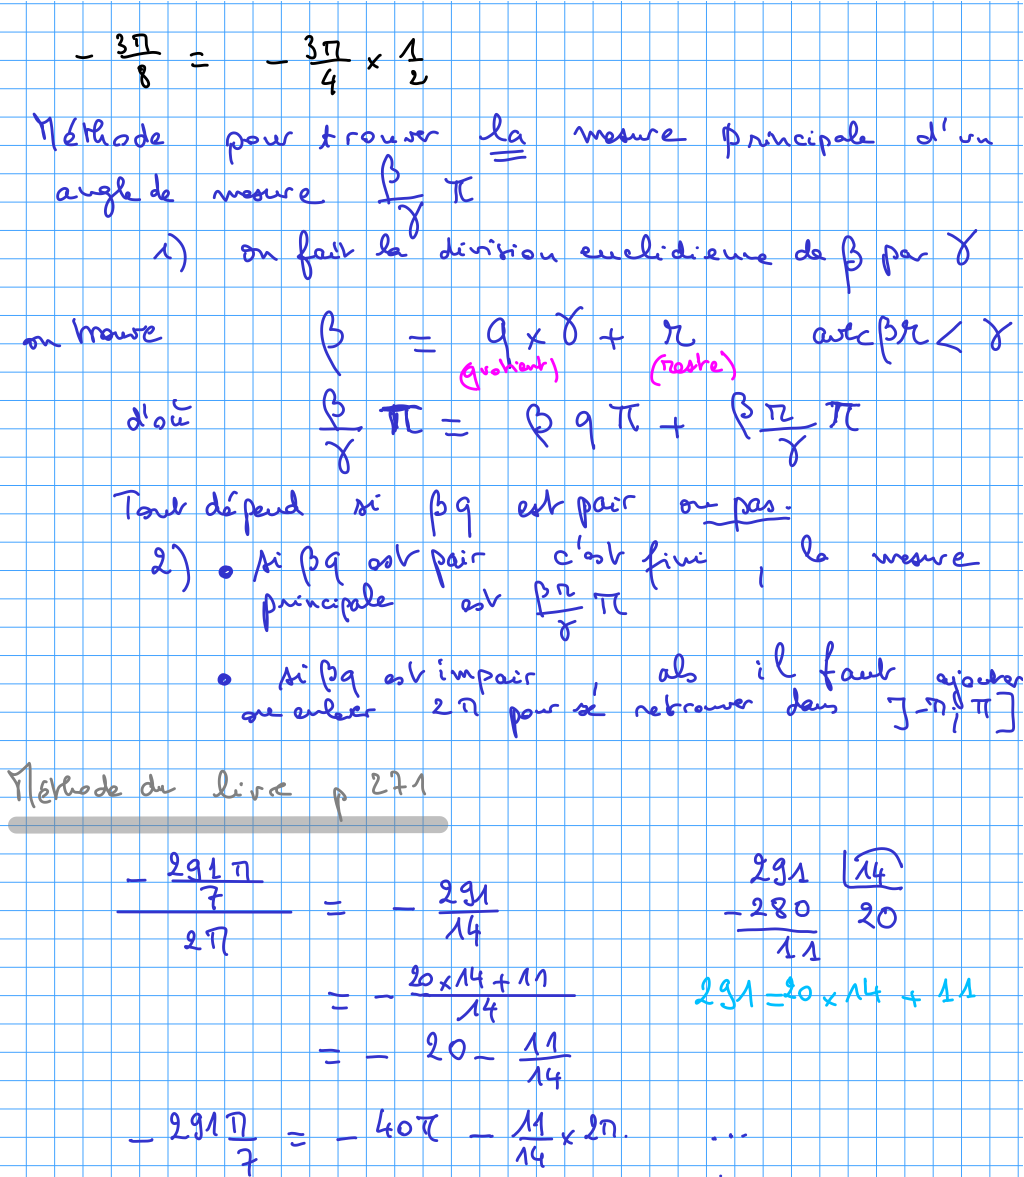 - 3π/8 = - 3π/4 × 1/2
Méthode pour trouver la mesure principale d'un
angle de mesure β/γ π
1) on fait la division euclidienne de β par γ
on trouve β = q × γ + r avec βr < γ
(quotient) (reste)
d'où β/γ π = β q π + β r/γ π
Tout dépend si βq est pair ou pas.
2) • si βq est pair c'est fini, la mesure
principale est βr/γ π
• si βq est impair, als il faut ajouter
ou enlever 2π pour se retrouver dans ]-π; π]
Méthode du livre p 271
(- 291π/7)/2π = - 291/14
291 | 14
- 280 20
11
= - (20×14 + 11)/14
291 = 20 × 14 + 11
= - 20 - 11/14
- 291π/7 = - 40π - 11/14 × 2π. ...